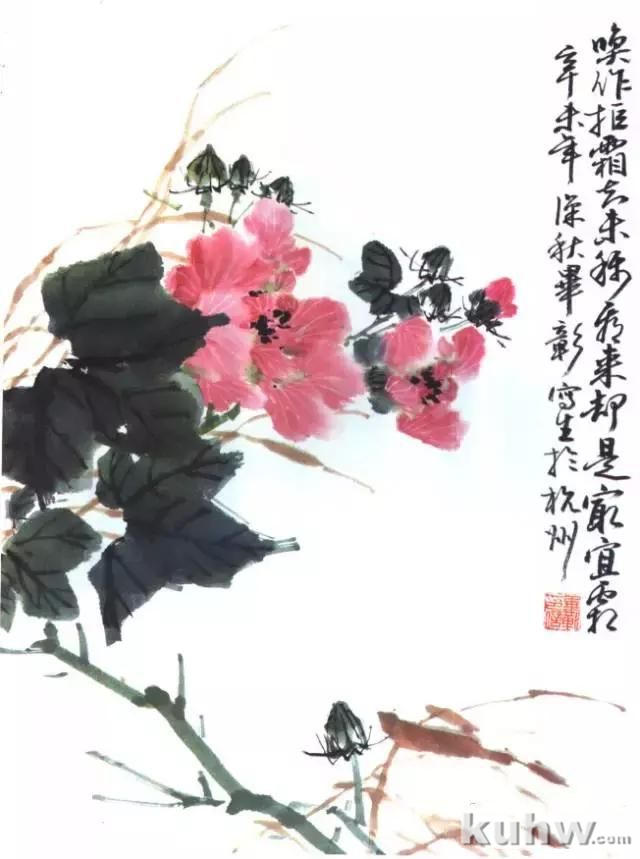 喚作拒霜知未称看来却是最宜霜
辛未年深秋畢彰写生於杭州
kuhw.com